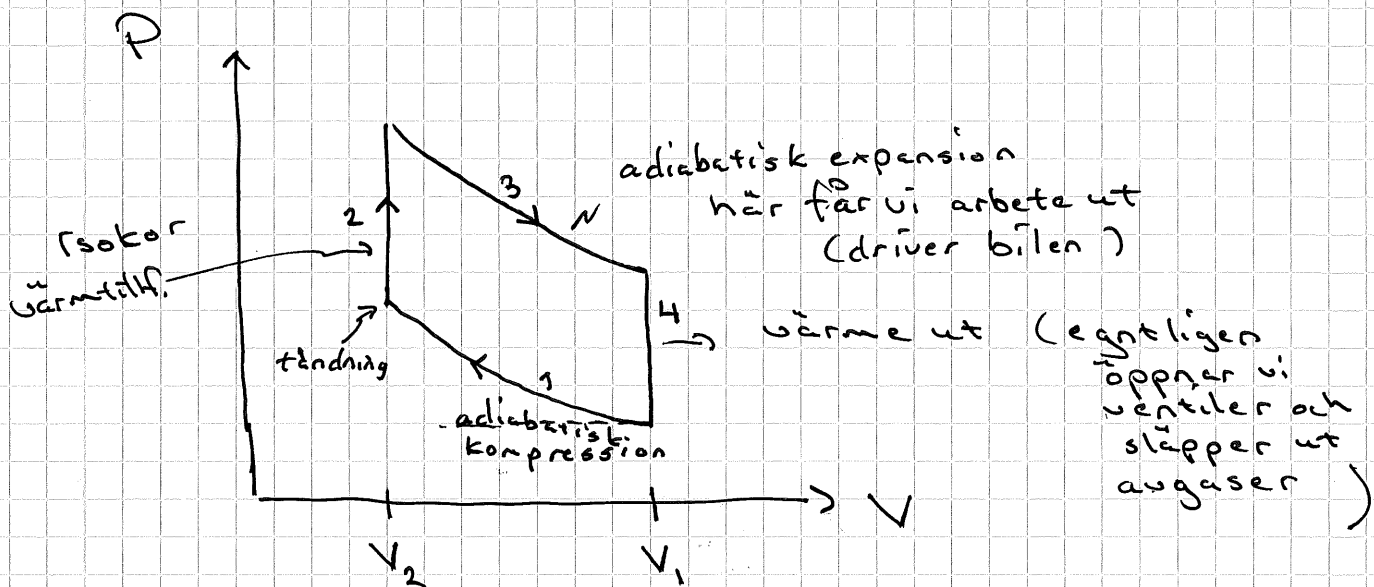 P
adiabatisk expansion
här får vi arbete ut
(driver bilen)
3
2
Isokor
värmtillf.
4
värme ut (egntligen
öppnar vi
ventiler och
släpper ut
avgaser
)
tändning
1
adiabatisk
kompression
V
V₂
V₁